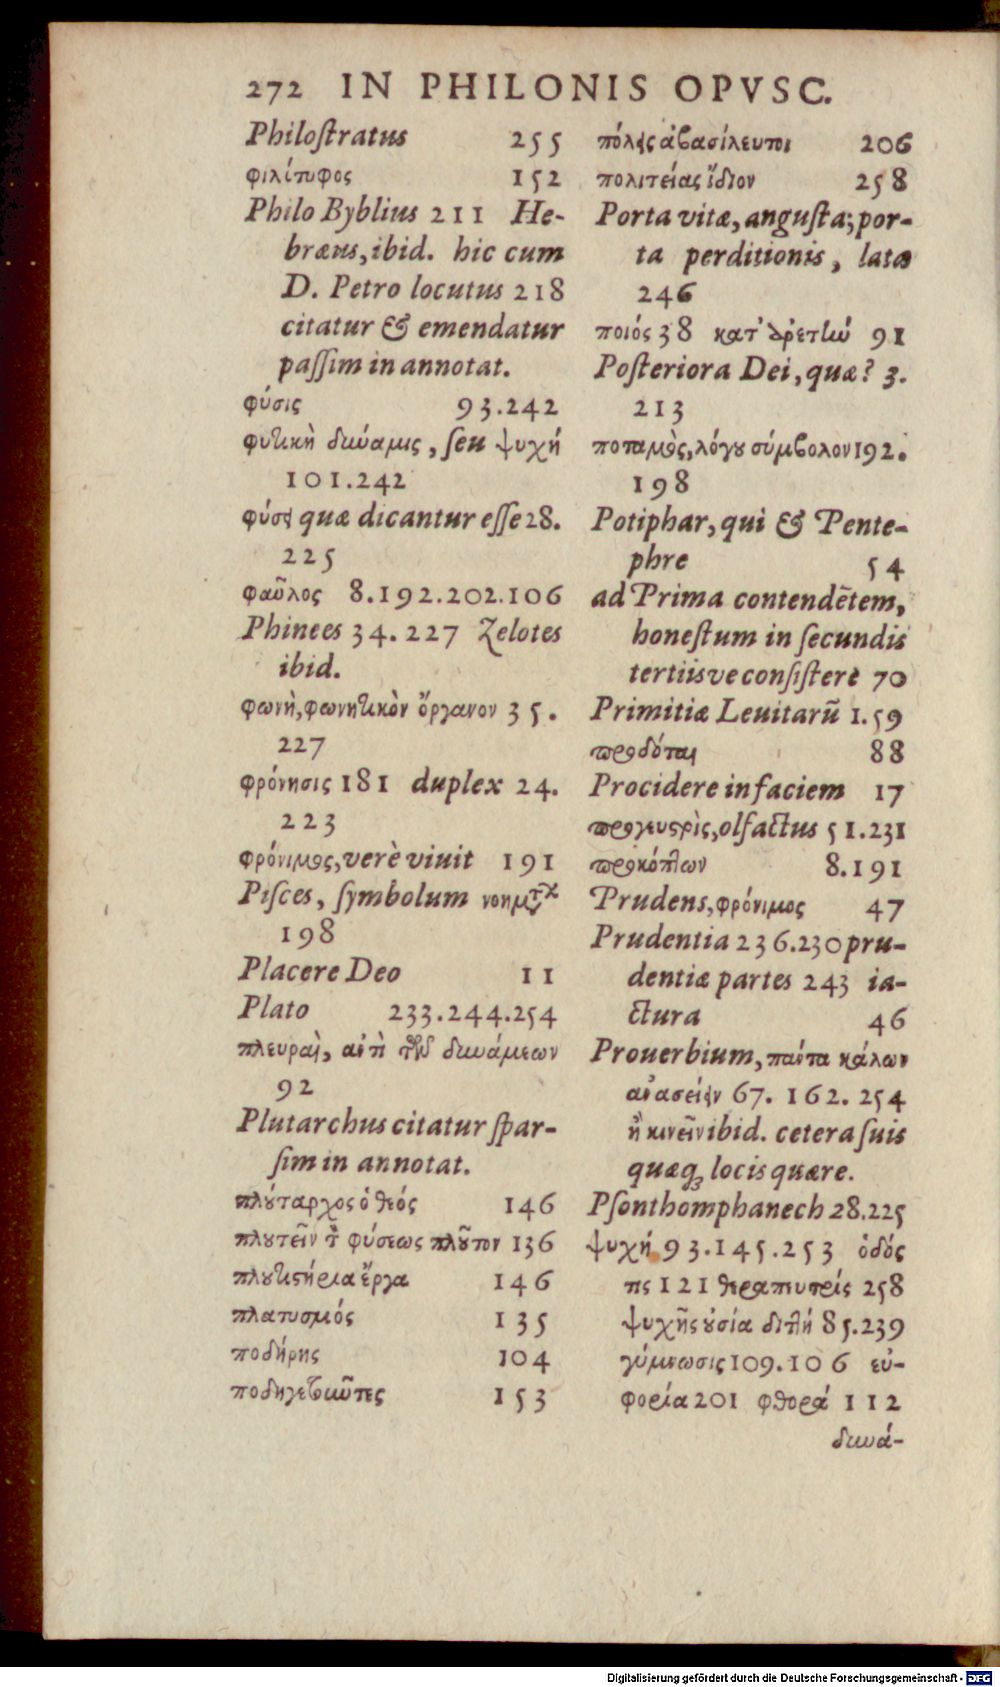 272 IN PHILONIS OPVSC.
Philoſtratus 255
φιλίτυφος 152
Philo Byblius 211 He-
bræus, ibid. hic cum
D. Petro locutus 218
citatur & emendatur
paſſim in annotat.
φύσις 93.242
φυτικὴ δυνάμις, ſeu ψυχή
101.242
φύσει quæ dicantur eſſe 28.
225
φαῦλος 8.192.202.106
Phinees 34.227 Zelotes
ibid.
φωνὴ, φωνητικὸν ὄργανον 35.
227
φρόνησις 181 duplex 24.
223
φρόνιμος, verè viuit 191
Piſces, ſymbolum
198
Placere Deo 11
Plato 233.244.254
πλευραὶ, ἀντὶ τῶν δυνάμεων
92
Plutarchus citatur ſpar-
ſim in annotat.
πλούταρχος ὁ θεός 146
πλουτεῖν τ φύσεως πλοῦτον 136
πλουτιστήρια ἔργα 146
πλατυσμός 135
ποδήρης 104
ποδηγετοῦντες 153
πόλεις ἀβασίλευτοι 206
πολιτείας ἴδιον 258
Porta vitæ, anguſta; por-
ta perditionis, lata
246
ποιός 38 κατ' ἀρετὴν 91
Poſteriora Dei, quæ? 3.
213
ποταμὸς, λόγου σύμβολον 192.
198
Potiphar, qui & Pente-
phre 54
ad Prima contendẽtem,
honeſtum in ſecundis
tertiisve conſiſtere 70
Primitiæ Leuitarũ 1.59
προδόται 88
Procidere in faciem 17
προγευστρὶς, olfactus 51.231
προκόπτων 8.191
Prudens, φρόνιμος 47
Prudentia 236.230 pru-
dentiæ partes 243 ia-
ctura 46
Prouerbium, πάντα κάλων
ἀνασείειν 67. 162. 254
ἢ κινεῖν ibid. cetera ſuis
quæq; locis quære.
Pſonthomphanech 28.225
ψυχή 93.145.253 ὁδός
τις 121 θεραπευτρίς 258
ψυχῆς οὐσία διττή 85.239
γύμνωσις 109.106 εὐ-
φορία 201 φθορά 112
δυνά-
Digitalisierung gefördert durch die Deutsche Forschungsgemeinschaft - DFG